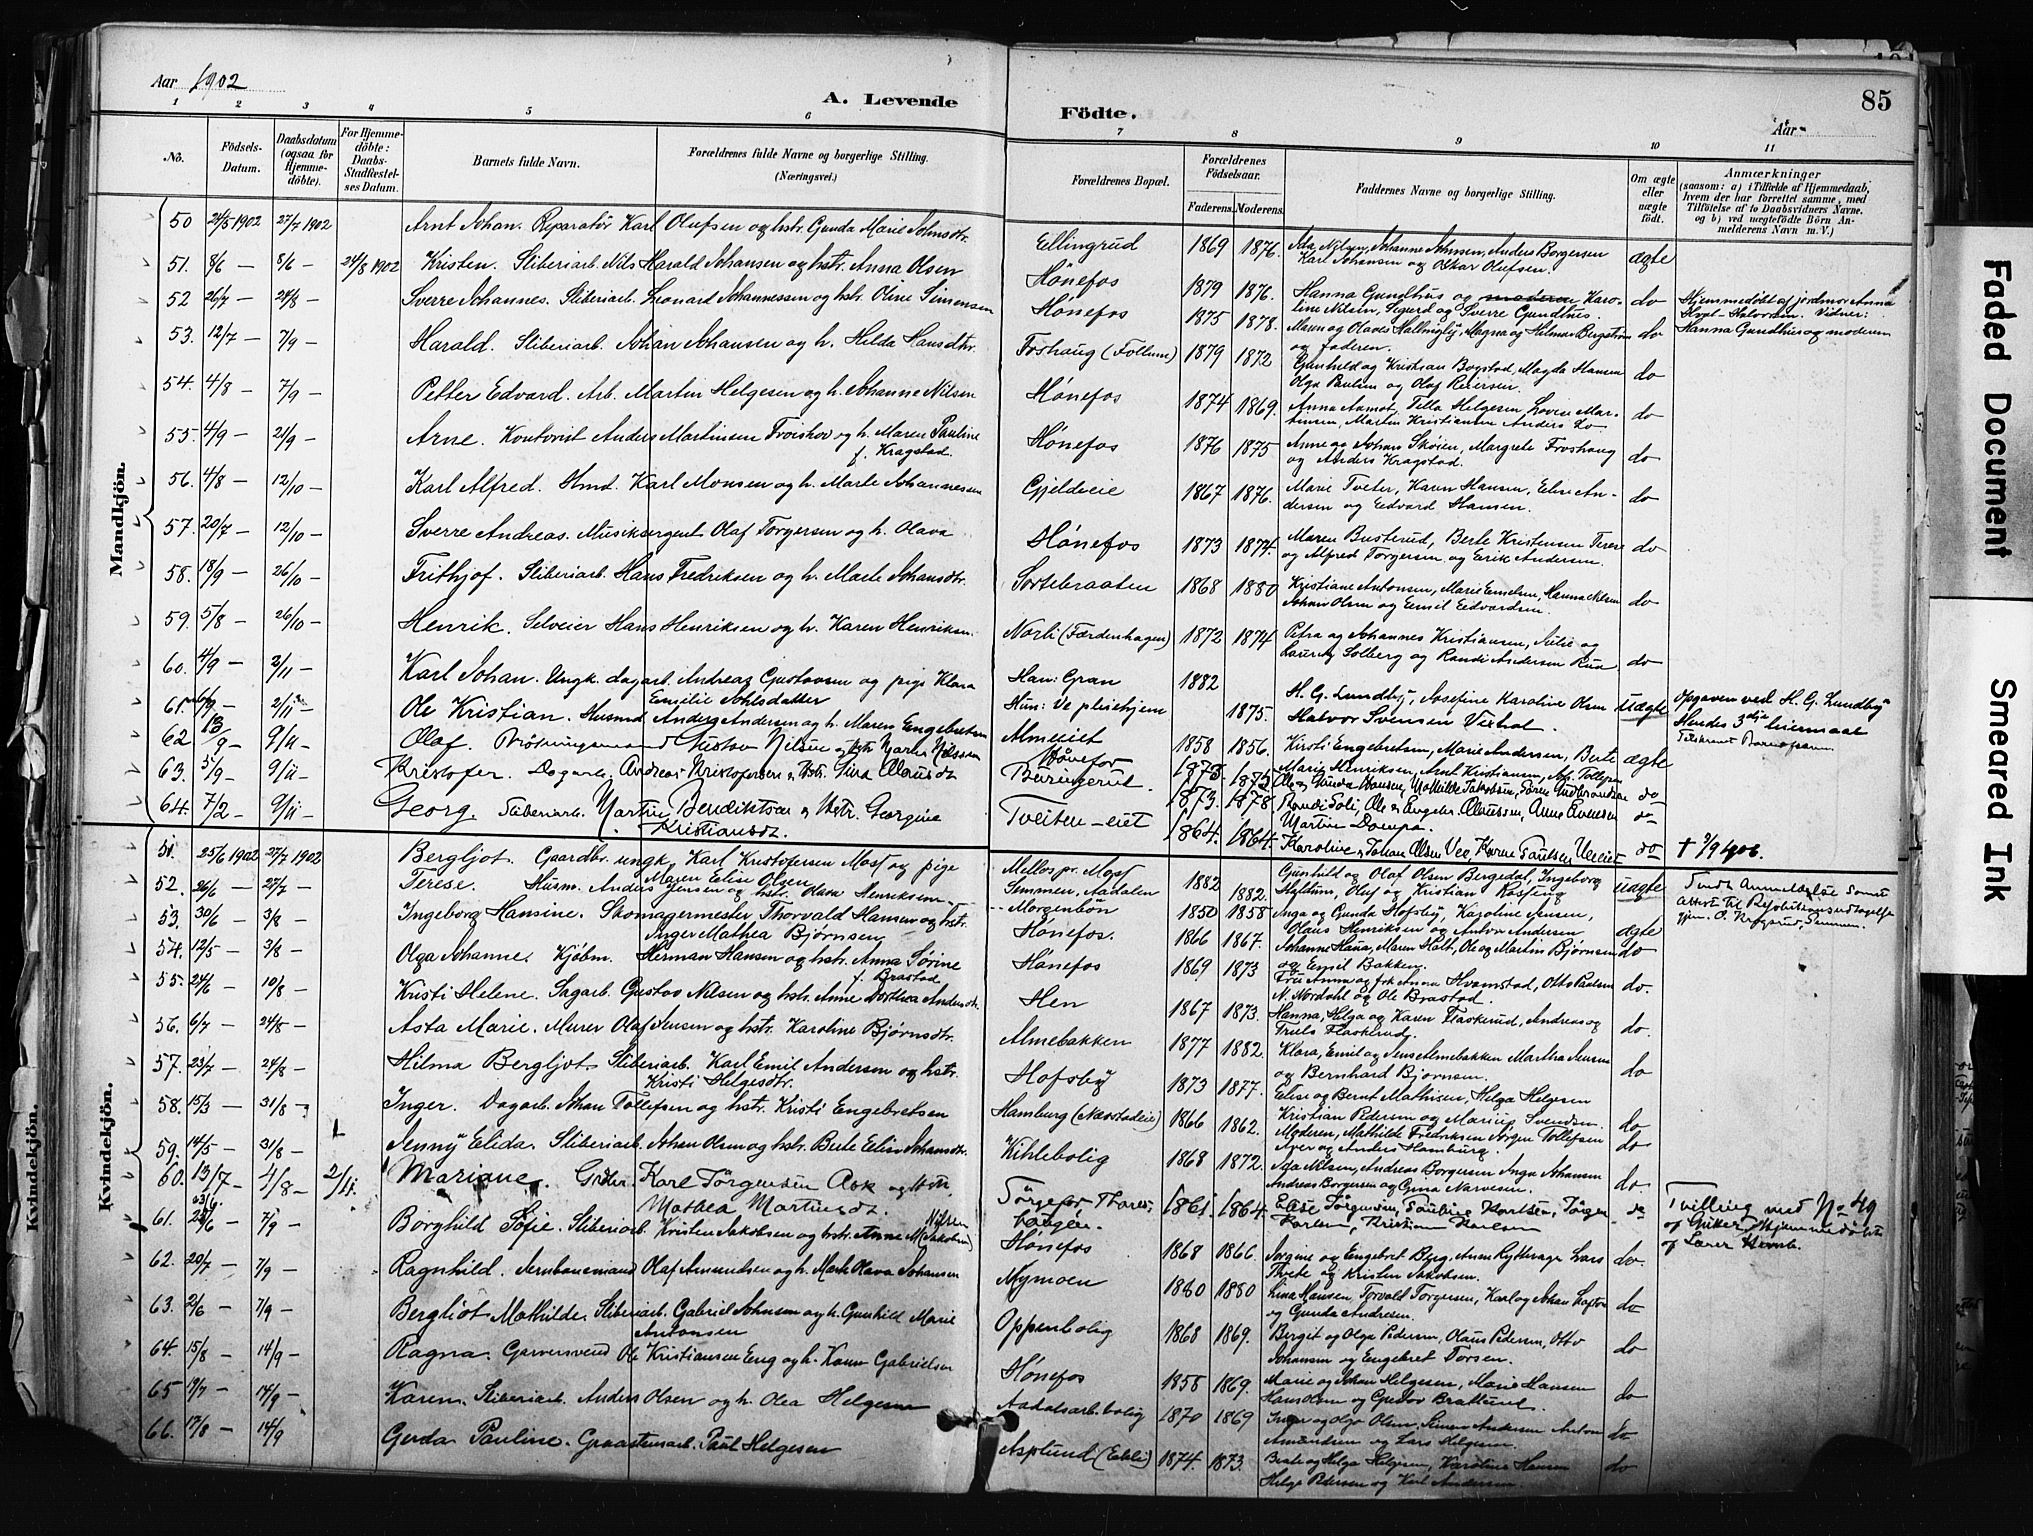 Aar 1902
A. Levende
Födte.
85
Aar
1 2 3 4 5 6 7 8 9 10 11
No.
Födsels-Datum.
Daabsdatum (ogsaa for Hjemmedöbte).
For Hjemmedöbte: Daabs-Stadfæstelses Datum.
Barnets fulde Navn.
Forældrenes fulde Navne og borgerlige Stilling. (Næringsvei.)
Forældrenes Bopæl.
Forældrenes Födselsaar.
Faderens. Moderens.
Faddernes Navne og borgerlige Stilling.
Om ægte eller uægte födt.
Anmærkninger
(saasom: a) i Tilfælde af Hjemmedaab, hvem der har forrettet samme, med Tilföielse af to Daabsvidners Navne. og b) ved uægtefödte Börn Anmelderens Navn m.V.)
Mandkjön.
50 24/5 1902 27/7 1902 Arnt Johan. Reparatør Karl Olufsen og hstr. Gunda Marie Johnsdtr. Eillingrud 1869 1876. Ada Nilsen, Johanne Johnsen, Anders Borgersen Karl Johansen og Oskar Olufsen. ægte
51. 8/6 — 8/6 — 24/8 1902 Kristen. Sliberiarb. Nils Harald Johansen og hstr. Anna Olsen Hønefos 1879 1876. Hanna Gundhus og Karoline Nilsen, Sigurd og Sverre Gundhus. do Hjemmedøbt af jordmor Anna Halvorsen. Vidner: Hanna Gundhus og moderen
52 26/7 — 24/8 — Sverre Johannes. Sliberiarb. Leonard Johannessen og hstr. Oline Simensen Hønefos 1875 1878. og Olaves Hallingby, Magna og Hilmar Bergstrøm og faderen. do
53. 12/7 — 7/9 — Harald. Sliberiarb. Johan Johansen og h. Helde Hansdtr. Foshaug (Follum) 1879 1872 Gunhild og Kristian Bogstad, Magda Hansen Olga Paulsen og Olaf Reiersen. do
54. 4/8 — 7/9 — Petter Edvard. Arb. Martin Helgesen og h. Johanne Nilsen Hønefos 1874 1869. Anna Aamot, Tilla Helgesen, Lovise Martinsen, Martin Kristiansen Anders do do
55. 4/9 — 21/9 — Arne. Kontorist Anders Martinsen Froishov og h. Maren Pauline f. Kragstad. Hønefos 1876 1875 Anne og Johan Skøien, Margrete Froshaug og Anders Kragstad. do
56. 4/8 — 12/10 — Karl Alfred. Hmd. Karl Monsen og h. Marte Johannessen Gjeldveie 1867 1876. Marie Tveter, Karen Hansen, Elise Andersen og Edvard Hansen. do
57. 20/7 — 12/10 — Sverre Andreas. Musiksergent Olaf Torgersen og h. Olava Hønefos 1873 1874. Maren Busterud, Berte Kristensen Terese og Alfred Torgersen og Erik Andersen. do
58. 18/9 — 26/10 — Frithjof. Sliberiarb. Hans Fredriksen og h. Marte Johansdtr. Sortebraaten 1868 1880 Kristiane Antonsen, Marie Emelsen, Hanna Nilsen Johan Olsen og Emil Eidvardsen. do
59. 5/8 — 26/10 — Henrik. Selveier Hans Henriksen og h. Karen Henriksen. Norli (Færdenhagen) 1872 1874 Petra og Johannes Kristiansen, Julie og Lauritz Solberg og Randi Andersen Rua do
60. 4/9 — 2/11 — Karl Johan. Ungk. dagarb. Andreas Gustavsen og pige Klara Emilie Johlsdatter Han: Gran Hun: Ve pleiehjem 1882 1875. H. G. Lundby, Josefine Karoline Olsen Halvor Svensen Vexhal. uægte Opgaven ved H. G. Lundby Hendes 3die leiermaal
61. 2/11 — Ole Kristian. Husmd. Anders Andersen og h. Maren Engebretsen Almeiet 1858 1856. Kirsti Engebretsen, Marie Andersen, Berte Marie Henriksen, Arnt Kristiansen, Ab. Tollefsen ægte
62 13/9 — 9/11 — Olaf. Gustav Nilsen og hstr Marte Nilssen Hønefos 1875. 1875 Ole og Gunda Hansen, Mathilde Jakobsen, do
63. 5/9 — 9/11 — Kristofer. Dagarb. Andreas Kristofersen og hstr. Sina Olausdt Buringerud 1873. 1878 Randi Soli, Ole og Engebr. Olaussen, Anne Evensen Martin do
64. 7/2 — 9/11 — Georg. Sliberiarb. Martin Bendiktsen og hstr. Georgine Kristiansdt. Tveiten-eiet 1864. 1864. Karoline og Johan Olsen Vee, Karen Paulsen Veeiet do † 3/9 1906.
Kvindekjön.
Kvindekjön.
51. 25/6 1902 27/7 1902 Bergljot. Gaardbr. ungk. Karl Kristofersen Moss og pige Maren Eline Olsen Mellos pr. Moss Semmen, Aadalen 1882 1882. Gunhild og Olaf Olsen Bergedal, Ingeborg Oluf og Kristian uægte
52. 26/6 — 27/7 — Terese. Husm. Anders Jensen og hstr. Olava Henriksen Morgenbøn 1850 1858 Inga og Gunda Hofsby, Karoline Jensen, Olaus Henriksen og Anton Andersen ægte
53. 30/6 — 3/8 — Ingeborg Hansine. Skomagermester Thorvald Hansen og hstr. Inger Mathea Bjørnsen Hønefos. 1866 1867. Johanne Haua, Maren Holt, Ole og Martin Bjørnsen og Emil Bakken. do
54. 12/5 — 3/8 — Olga Johanne. Kjøbm. Herman Hansen og hstr. Anna Sørine f. Brastad Hønefos 1869 1873 Fru Anna og frk Anna Kvamstad, Otto Paulsen N. Nordahl og Ole Brastad. do.
55. 24/6 — 10/8 — Kristi Helene. Sagarb. Gustav Nilsen og hstr. Anne Dorthea Andersdtr. Hen 1867 1873. Hanna, Helga og Karen Flaskerud, Andreas og Truls Flaskerud. do.
56. 6/7 — 24/8 — Asta Marie. Murer Olaf Jensen og hstr. Karoline Bjørnsdtr. Almebakken 1877 1882. Klara, Emil og Jens Almebakken Martha Jensen og Bernhard Bjørnsen. do
57. 23/7 — 24/8 — Hilma Bergljot. Sliberiarb. Karl Emil Andersen og hstr. Kristi Helgesdtr. Hofsby 1873 1877. Elise og Bernt Mathisen, Helga Helgesen Kristian Pedersen og Marius Svendsen. do
58. 15/3 — 31/8 — Inger. Dagarb. Johan Tollefsen og hstr. Kristi Engebretsen Hamburg (Næsstadeie) 1866 1862. Moderen, Mathilde Fredriksen Jørgen Tollefsen og Anders Hamburg. do
59. 14/5 — 31/8 — Jenny Elida. Sliberiarb. Johan Olsen og hstr. Berte Eline Johansdtr. Kihlebolig 1868 1872. Ada Nilsen, Andreas Borgersen Inga Johansen Andreas Borgersen og Gina Narvesen. do.
60. 13/7 — 4/8 — 2/11. Mariane. Grdbr. Karl Jørgensen Ask og Mathea Martinsdt. 1861. 1864. Else Jørgensen, Pauline Karlsen, Jørgen Karlsen, Kristian Karlsen do Tvilling med No 49
61. 7/9 — Borghild Sofie. Sliberiarb. Kristen Jakobsen og hstr. Anne M. Nilsen (Jakobsen) Hønefos 1868 1866. Jorgine og Engebret Berg, Anne Rytterager Lars Tveite og Kristen Jakobsen. do
62. 20/7 — 7/9 — Ragnhild. Jernbanemand Olaf Amundsen og h. Marte Olava Johansen Mymoen 1880 1880 Lina Hansen, Torvald Torgersen, Karl og Johan og Gunda Andresen. do
63. 2/6 — 7/9 — Bergliot Mathilde. Sliberiarb. Gabriel Johnsen og h. Gunhild Marie Antonsen Oppenbolig 1868 1869. Bergit og Olga Pedersen, Olaus Pedersen, Otto Johansen og Engebret Torsen. do
64. 15/8 — 14/9 — Ragna. Garversvend Ole Kristiansen Eng og h. Karen Gabrielsen Hønefos 1858 1869. Marie og Johan Helgesen, Marie Hansen Hans Olsen og Gustav Bratterud. do
65 19/7 — 14/9 — Karen. Sliberiarb. Anders Olsen og h. Olea Helgesen Aadalsarb.bolig 1870 1869 Inger og Olga Olsen, Simen Andersen Anton Amundsen og Lars Helgesen. do
66. 17/8 — 14/9 Gerda Pauline. Graastensarb. Paul Helgesen Asplund (Eikli) 1874. 1873. Berte og Helga Helgesen, Karoline Hansen Helge Pedersen og Karl Andersen. do
Faded Document
Smeared Ink